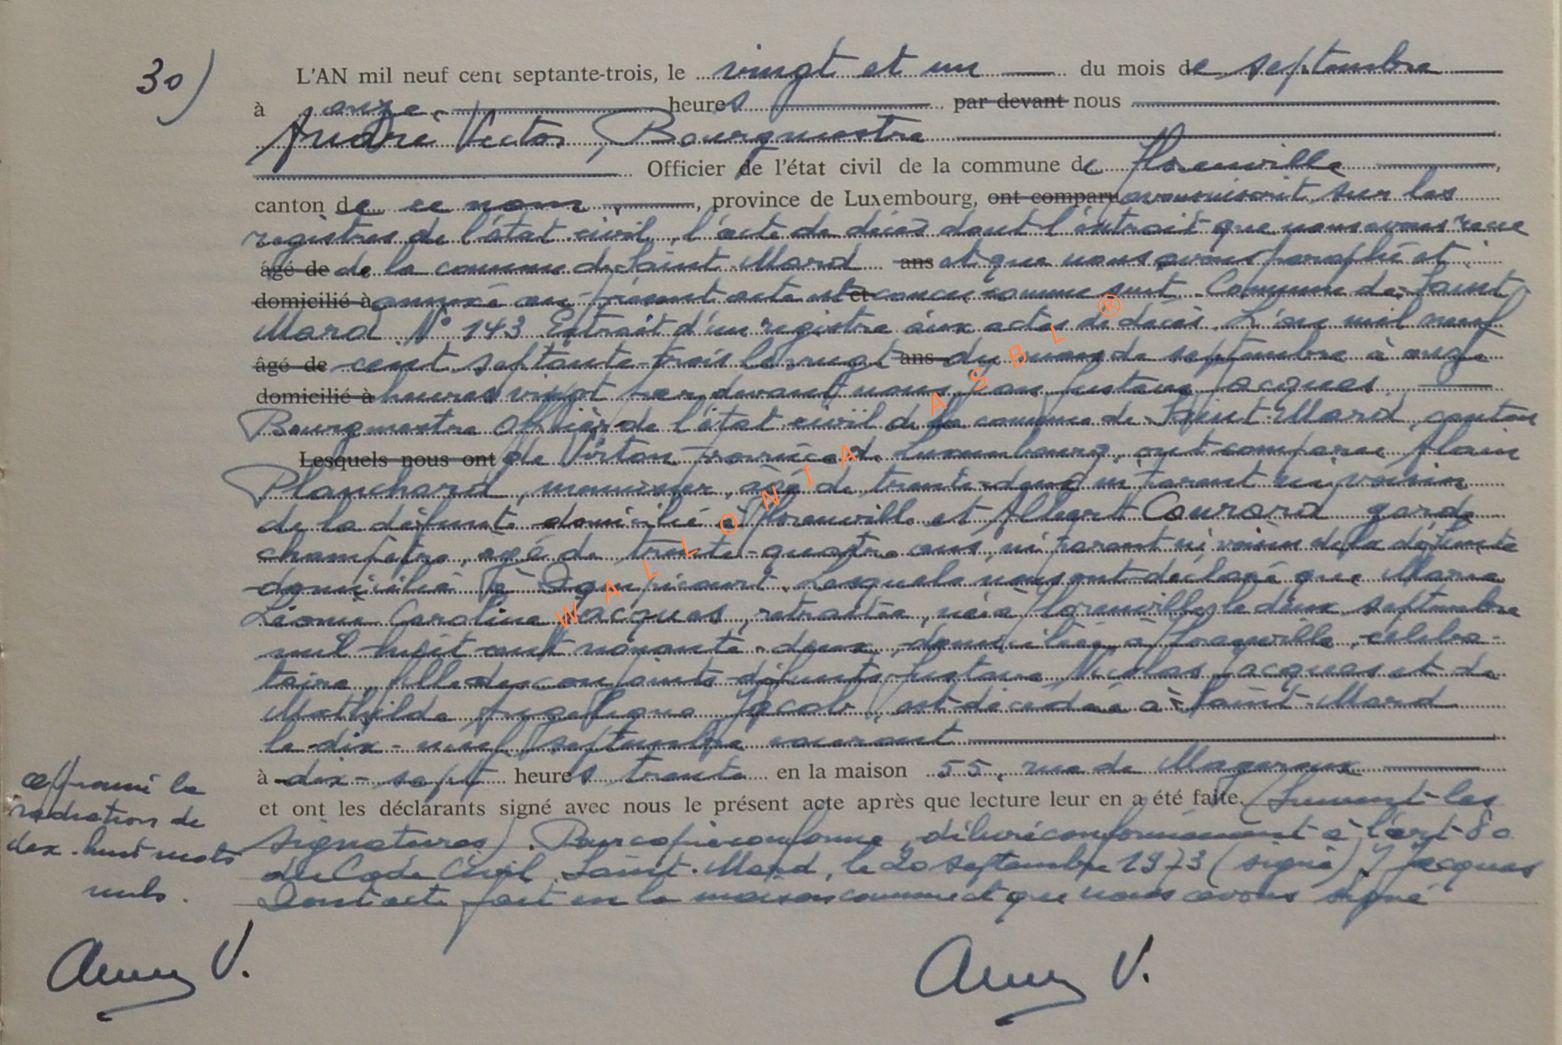 30)
L'AN mil neuf cent septante-trois, le vingt et un du mois de septembre
à onze heures par devant nous
André Victor, Bourgmestre
Officier de l'état civil de la commune de Florenville,
canton de ce nom, province de Luxembourg, ont comparu avons inscrit sur les
registres de l'état civil, l'acte de décès dont l'extrait que nous avons reçu
âgé de de la commune de Saint-Mard ans et que nous avons paraphé et
domicilié à annexé au présent acte est et conçu comme suit. Commune de Saint-
Mard N° 143 Extrait d'un registre aux actes de décès. L'an mil neuf
âgé de cent septante-trois le vingt ans du mois de septembre à onze
domicilié à heures vingt par devant nous Jacques
Bourgmestre Officier de l'état civil de la commune de Saint-Mard, canton
Lesquels nous ont de Virton province de Luxembourg, ont comparu Alain
Planchard, menuisier, âgé de trente-deux ni parent ni voisin
de la défunte domicilié à Florenville et Albert Courard garde
champêtre, âgé de trente-quatre ans, ni parent ni voisin de la défunte
domicilié à. Lesquels nous ont déclaré que Marie
Léonie Caroline Jacques, retraitée, née à Florenville, le deux septembre
mil huit cent nonante-deux, domiciliée à Florenville, céliba-
taire, fille des conjoints défunts Gustave Nicolas Jacques et de
Mathilde Angélique Jacob, est décédée à Saint-Mard
le dix-neuf septembre courant
à dix-sept heures trente en la maison 55, rue de
et ont les déclarants signé avec nous le présent acte après que lecture leur en a été faite. (Suivent les
signatures). Pour copie conforme, délivré conformément à l'art. 80
du Code Civil. Saint-Mard, le 20 septembre 1973 (signé) J Jacques
Dont acte fait en la maison commune et que nous avons signé
approuvé la
radiation de
dix-huit mots
nuls.
André V.
André V.
WALLONIA ASBL ®